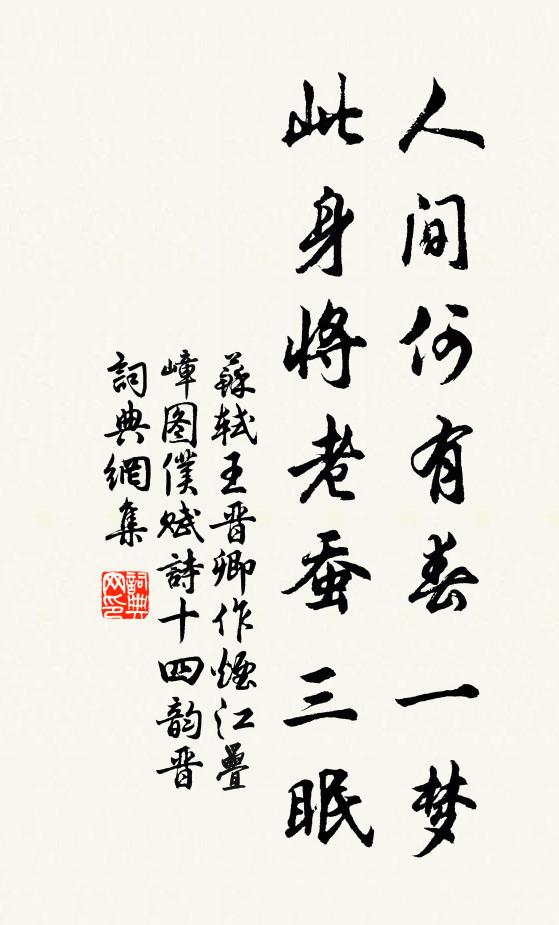 人间何有春一梦
此身将老蚕三眠
蘇轼王晋卿作煙江疊
嶂图僕赋詩十四韵晋
詞典網集
詞典
网印